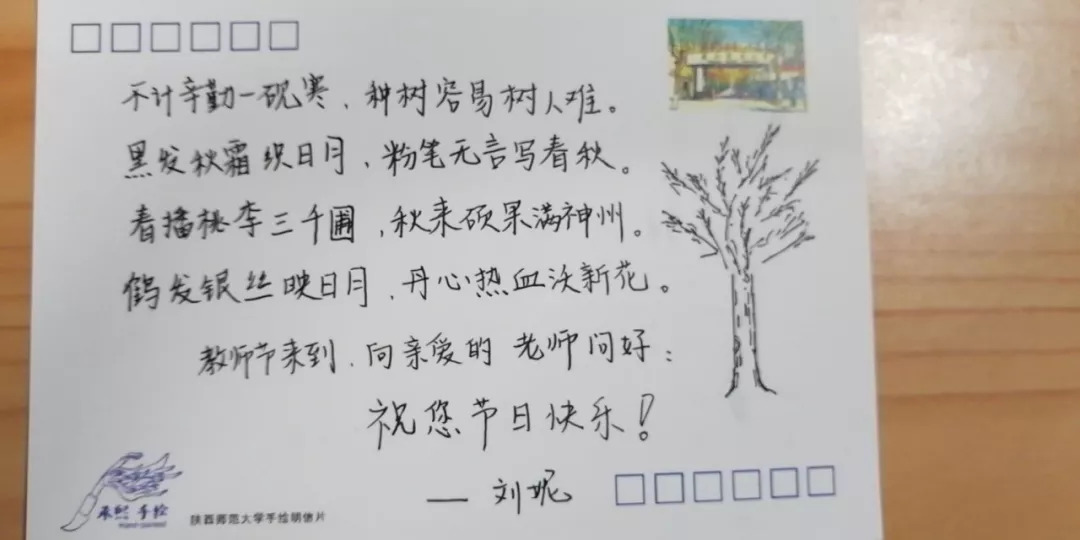 不计辛勤一砚寒，种树容易树人难。
黑发秋霜织日月，粉笔无言写春秋。
春播桃李三千圃，秋来硕果满神州。
鹤发银丝映日月，丹心热血沃新花。
教师节来到，向亲爱的老师问好：
祝您节日快乐！
——刘妮
手绘
陕西师范大学手绘明信片